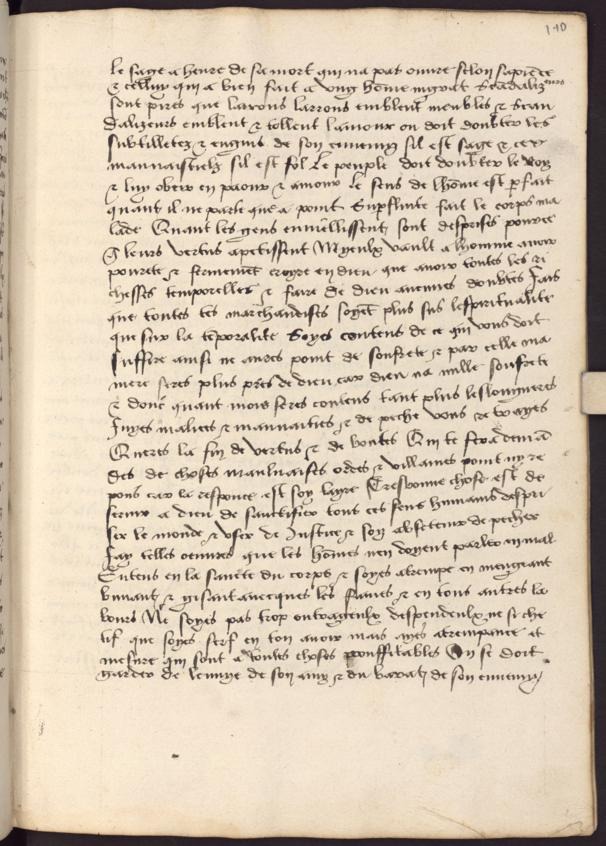 110
le sage a heure de sa mort qui na pas ouvre selon sapience
& celluy qui a bien fait a ung home ingrat Scandalizeurs
sont pires que larrons larrons emblent meubles & scan
dalizeurs emblent & tollent lamour on doit doubter les
subtilletez & engins de son ennemy sil est sage & ces
mauvaistiez sil est fol Le peuple doit doubter le Roy
& luy obeir en paour & amour Le sens de lhome est parfait
quant il ne parle que a point Superfluite fait le corps ma
lade Quant les gens enviellissent sont desprises pource
q leurs vertus apetissent Myeulx vault a lhomme avoir
povrete & fermement croyre en dieu que avoir toutes les ri
chesses temporelles & faire de dieu aucunes doubtes Fais
que toutes tes marchandises soyent plus sus lespiritualite
que sur la temporalite Soyes contens de ce qui vous doit
suffire ainsi ne aures point de souffrete & par celle ma
niere seres plus pres de dieu car dieu na nulle souffrete
& donc quant mois seres contens tant plus leslongneres
Fuyes malices & mauvaities & de peche vous retrayes
Queres la fin de vertus & de bontes Qui te fera deman
des de choses maulvaises ordes & villaines point ny re
pons car la responce est son layre Tresbonne chose est de
servir a dieu de sanctifier tout ces sens humains despri
ser le monde & user de Justice & son absteteur de pecher
Fay telles oeuvres que les homes nen doyent parler en mal
Entens en la sancte du corps & soyes atrempe en mengeant
buvant & gisant avecques les fames & en tous autres la
bours Ne soyes pas trop oultrageulx despendeulx ne si che
tif que soyes serf en ton avoir mais ayes atrempance et
mesure qui sont a toutes choses prouffitables On se doit
garder de lenvye de son amy & du barat de son ennemy